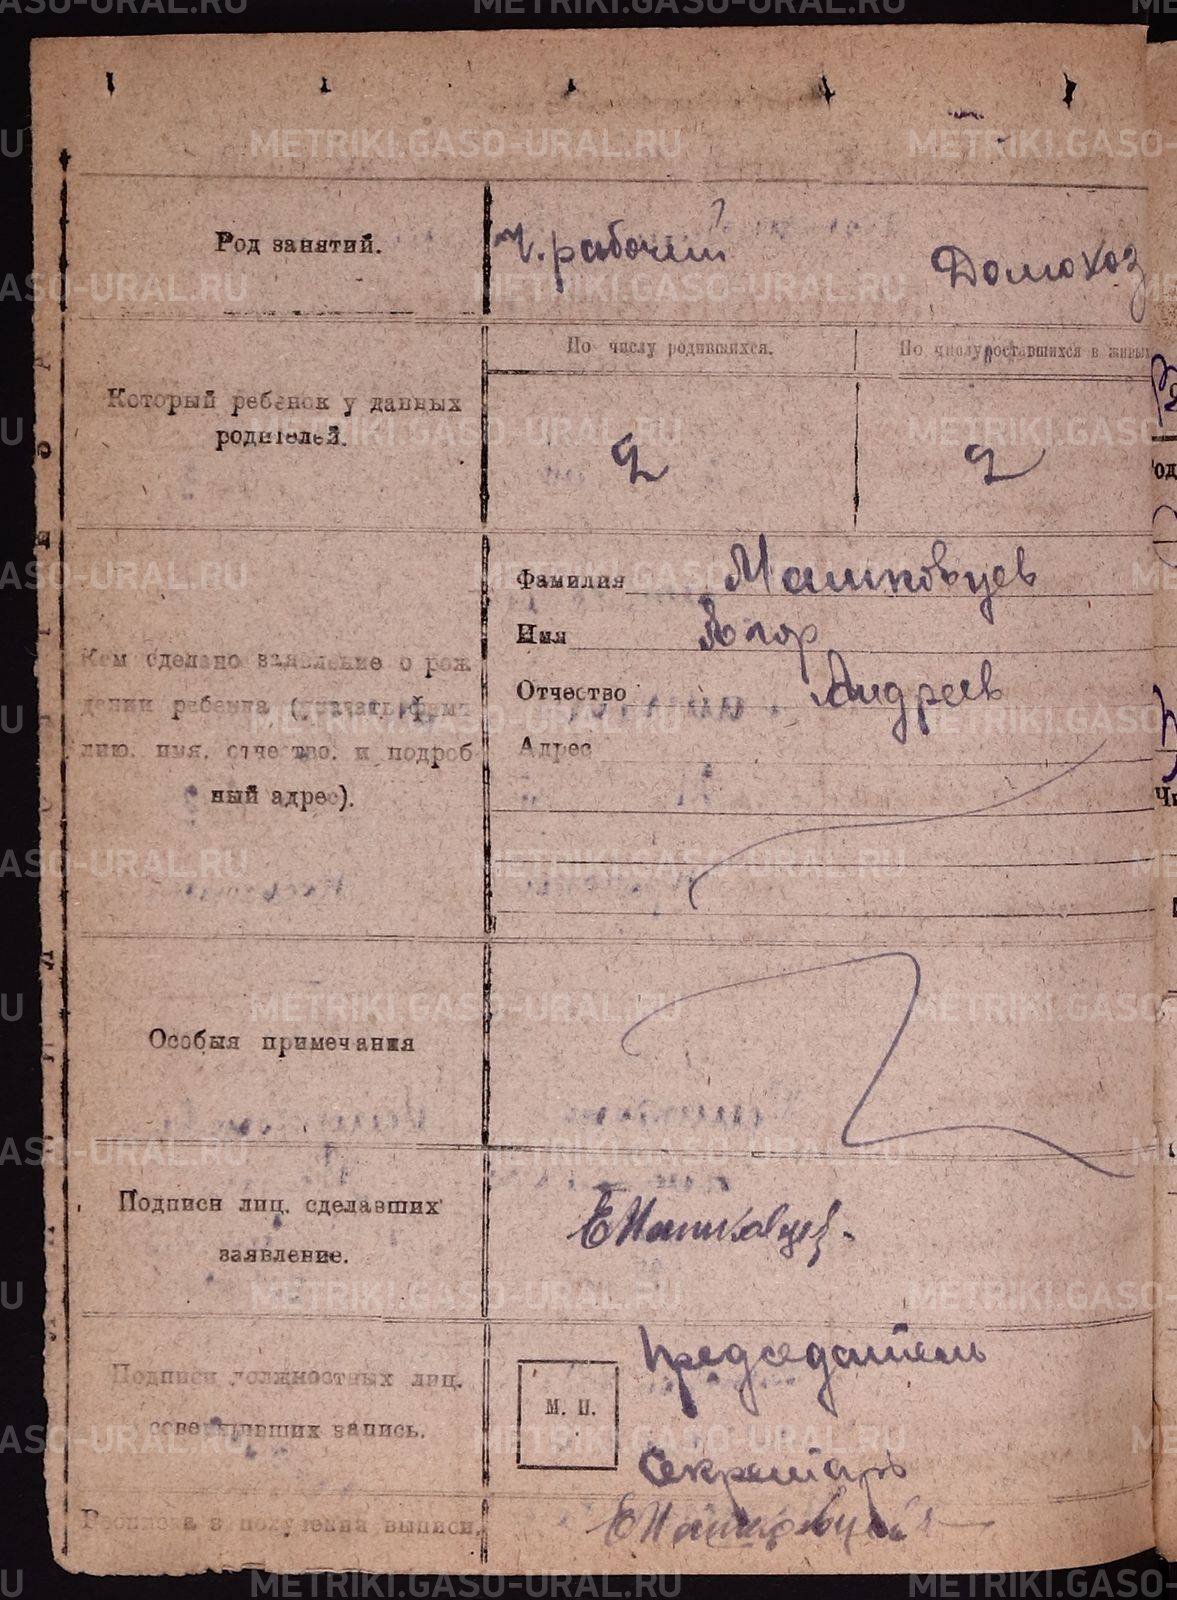 METRIKI.GASO-URAL.RU
Род занятий.
Ч. рабочий
Домохоз
По числу родившихся.
По числу оставшихся в живых
Который ребенок у данных
родителей.
2
2
Кем сделано заявление о рож
дении ребенка (означать фами
лию. имя. отчество. и подроб
ный адрес).
Фамилия Машковцев
Имя Егор
Отчество Андреев
Адрес
Особыя примечания
Подписи лиц. сделавших
заявление.
ЕМашковцев.
Подписи должностных лиц.
совершивших запись.
М. П.
Председатель
Секретарь
Росписка в получении выписи.
ЕМашковцев